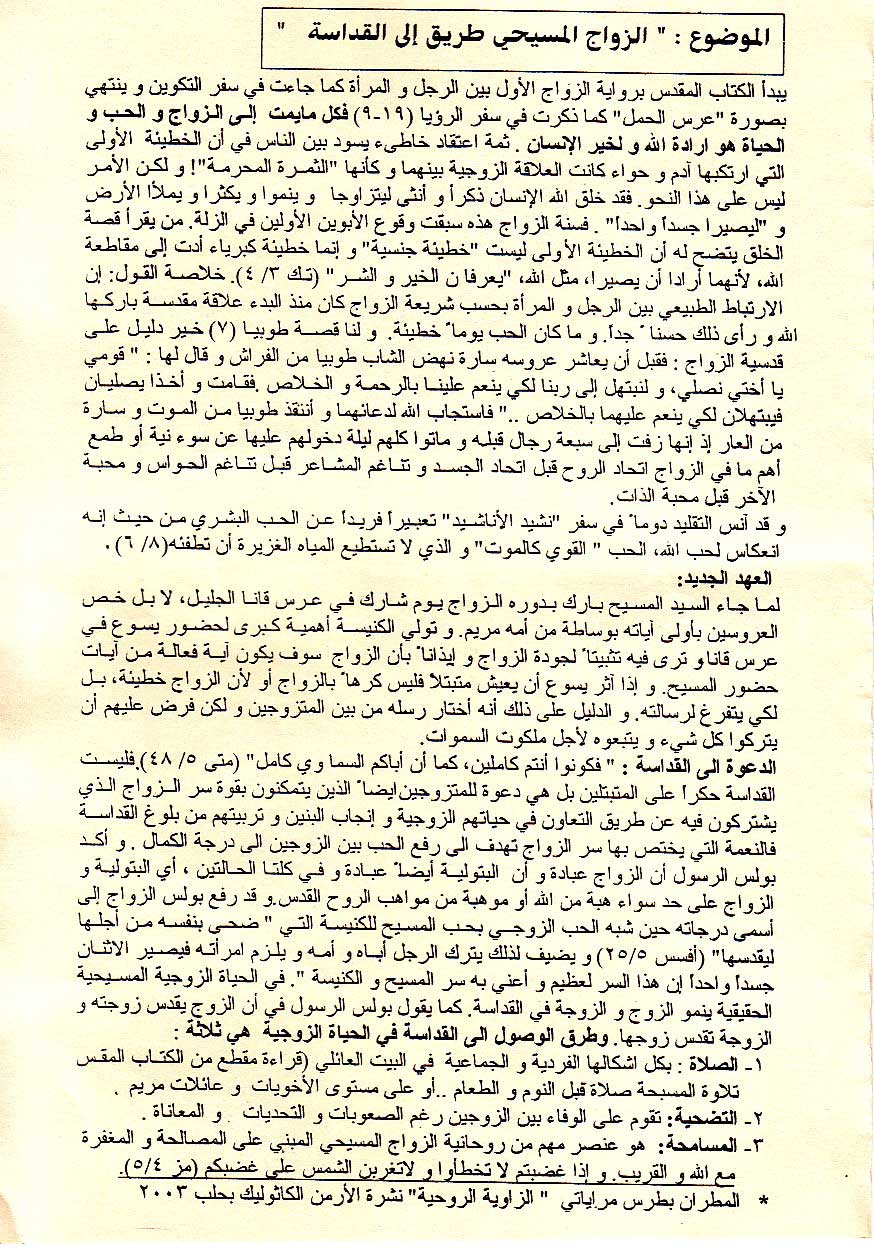 الموضوع : " الزواج المسيحي طريق إلى القداسة "
يبدأ الكتاب المقدس برواية الزواج الأول بين الرجل و المرأة كما جاءت في سفر التكوين و ينتهي
بصورة "عرس الحمل" كما ذكرت في سفر الرؤيا (١٩-٩) فكل مايمت إلى الزواج و الحب و
الحياة هو ارادة الله و لخير الإنسان . ثمة اعتقاد خاطىء يسود بين الناس في أن الخطيئة الأولى
التي ارتكبها آدم و حواء كانت العلاقة الزوجية بينهما و كأنها "الثمرة المحرمة"! و لكن الأمر
ليس على هذا النحو. فقد خلق الله الإنسان ذكراً و أنثى ليتزاوجا و ينموا و يكثرا و يملأا الأرض
و "ليصيرا جسداً واحداً" . فسنة الزواج هذه سبقت وقوع الأبوين الأولين في الزلة. من يقرأ قصة
الخلق يتضح له أن الخطيئة الأولى ليست "خطيئة جنسية" و إنما خطيئة كبرياء أدت إلى مقاطعة
الله، لأنهما أرادا أن يصيرا، مثل الله، "يعرفا ن الخير و الشر" (تك ٣/ ٤). خلاصة القول: إن
الارتباط الطبيعي بين الرجل و المرأة بحسب شريعة الزواج كان منذ البدء علاقة مقدسة باركها
الله و رأى ذلك حسناً جداً. و ما كان الحب يوماً خطيئة. و لنا قصة طوبيا (٧) خير دليل على
قدسية الزواج : فقبل أن يعاشر عروسه سارة نهض الشاب طوبيا من الفراش و قال لها : " قومي
يا أختي نصلي، و لنبتهل إلى ربنا لكي ينعم علينا بالرحمة و الخلاص .فقامت و أخذا يصليان
فيبتهلان لكي ينعم عليهما بالخلاص .." فاستجاب الله لدعائهما و أنتقذ طوبيا من الموت و سارة
من العار إذ إنها زفت إلى سبعة رجال قبله و ماتوا كلهم ليلة دخولهم عليها عن سوء نية أو طمع
أهم ما في الزواج اتحاد الروح قبل اتحاد الجسد و تناغم المشاعر قبل تناغم الحواس و محبة
الآخر قبل محبة الذات.
و قد آنس التقليد دوماً في سفر "نشيد الأناشيد" تعبيراً فريداً عن الحب البشري من حيث إنه
انعكاس لحب الله، الحب " القوي كالموت" و الذي لا تستطيع المياه الغزيرة أن تطفئه(٨/ ٦).
العهد الجديد:
لما جاء السيد المسيح بارك بدوره الزواج يوم شارك في عرس قانا الجليل، لا بل خص
العروسين بأولى آياته بوساطة من أمه مريم. و تولي الكنيسة أهمية كبرى لحضور يسوع في
عرس قانا و ترى فيه تثبيتاً لجودة الزواج و إيذاناً بأن الزواج سوف يكون آية فعالة من آيات
حضور المسيح. و إذا آثر يسوع أن يعيش متبتلا فليس كرهاً بالزواج أو لأن الزواج خطيئة، بل
لكي يتفرغ لرسالته. و الدليل على ذلك أنه أختار رسله من بين المتزوجين و لكن فرض عليهم أن
يتركوا كل شيء و يتبعوه لأجل ملكوت السموات.
الدعوة الى القداسة : " فكونوا أنتم كاملين، كما أن أباكم السما وي كامل" (متى ٥/ ٤٨).فليست
القداسة حكراً على المتبتلين بل هي دعوة للمتزوجين ايضاً الذين يتمكنون بقوة سر الزواج الذي
يشتركون فيه عن طريق التعاون في حياتهم الزوجية و إنجاب البنين و تربيتهم من بلوغ القداسة
فالنعمة التي يختص بها سر الزواج تهدف الى رفع الحب بين الزوجين الى درجة الكمال . و أكد
بولس الرسول أن الزواج عبادة و أن البتولية أيضاً عبادة و في كلتا الحالتين ، أي البتولية و
الزواج على حد سواء هبة من الله أو موهبة من مواهب الروح القدس.و قد رفع بولس الزواج إلى
أسمى درجاته حين شبه الحب الزوجي بحب المسيح للكنيسة التي " ضحى بنفسه من أجلها
ليقدسها" (أفسس ٢٥/٥) و يضيف لذلك يترك الرجل أباه و أمه و يلزم امرأته فيصير الاثنان
جسداً واحداً إن هذا السر لعظيم و أعني به سر المسيح و الكنيسة ". في الحياة الزوجية المسيحية
الحقيقية ينمو الزوج و الزوجة في القداسة. كما يقول بولس الرسول في أن الزوج يقدس زوجته و
الزوجة تقدس زوجها. وطرق الوصول الى القداسة في الحياة الزوجية هي ثلاثة :
١- الصلاة : بكل اشكالها الفردية و الجماعية في البيت العائلي (قراءة مقطع من الكتاب المقس
تلاوة المسبحة صلاة قبل النوم و الطعام ..أو على مستوى الأخويات و عائلات مريم .
٢- التضحية: تقوم على الوفاء بين الزوجين رغم الصعوبات و التحديات . و المعاناة .
٣- المسامحة: هو عنصر مهم من روحانية الزواج المسيحي المبني على المصالحة و المغفرة
مع الله و القريب. و إذا غضبتم لا تخطأوا و لاتغربن الشمس على غضبكم (مز ٥/٤).
* المطران بطرس مراياتي " الزاوية الروحية" نشرة الأرمن الكاثوليك بحلب ٢٠٠٣